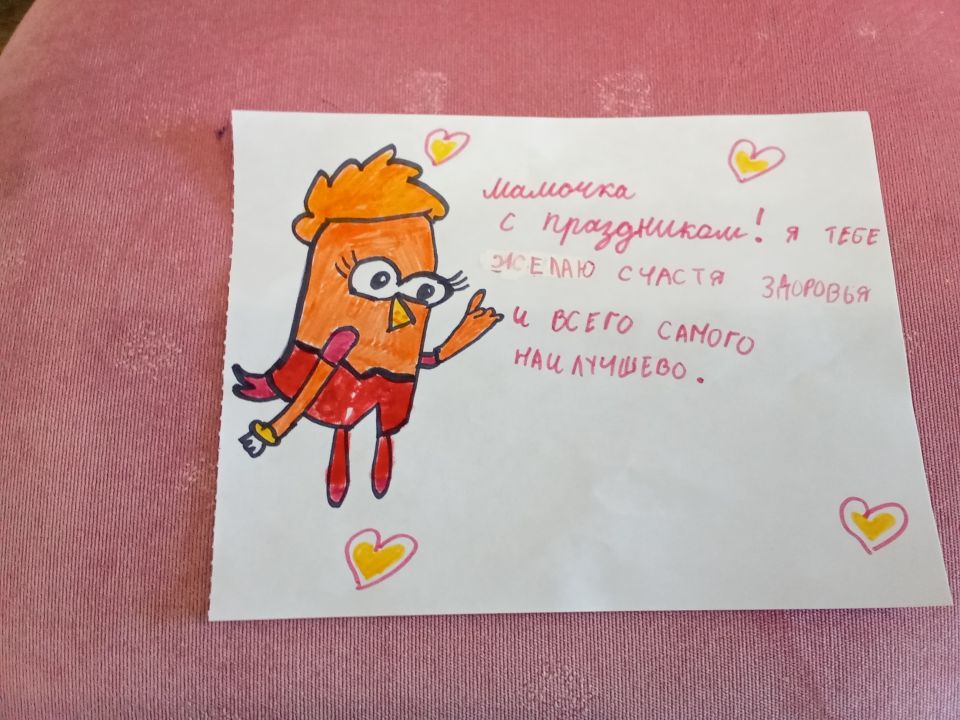 Мамочка
с праздником! я ТЕБЕ
ЖЕЛАЮ СЧАСТЯ ЗДОРОВЬЯ
И ВСЕГО САМОГО
НАИЛУЧШЕВО.